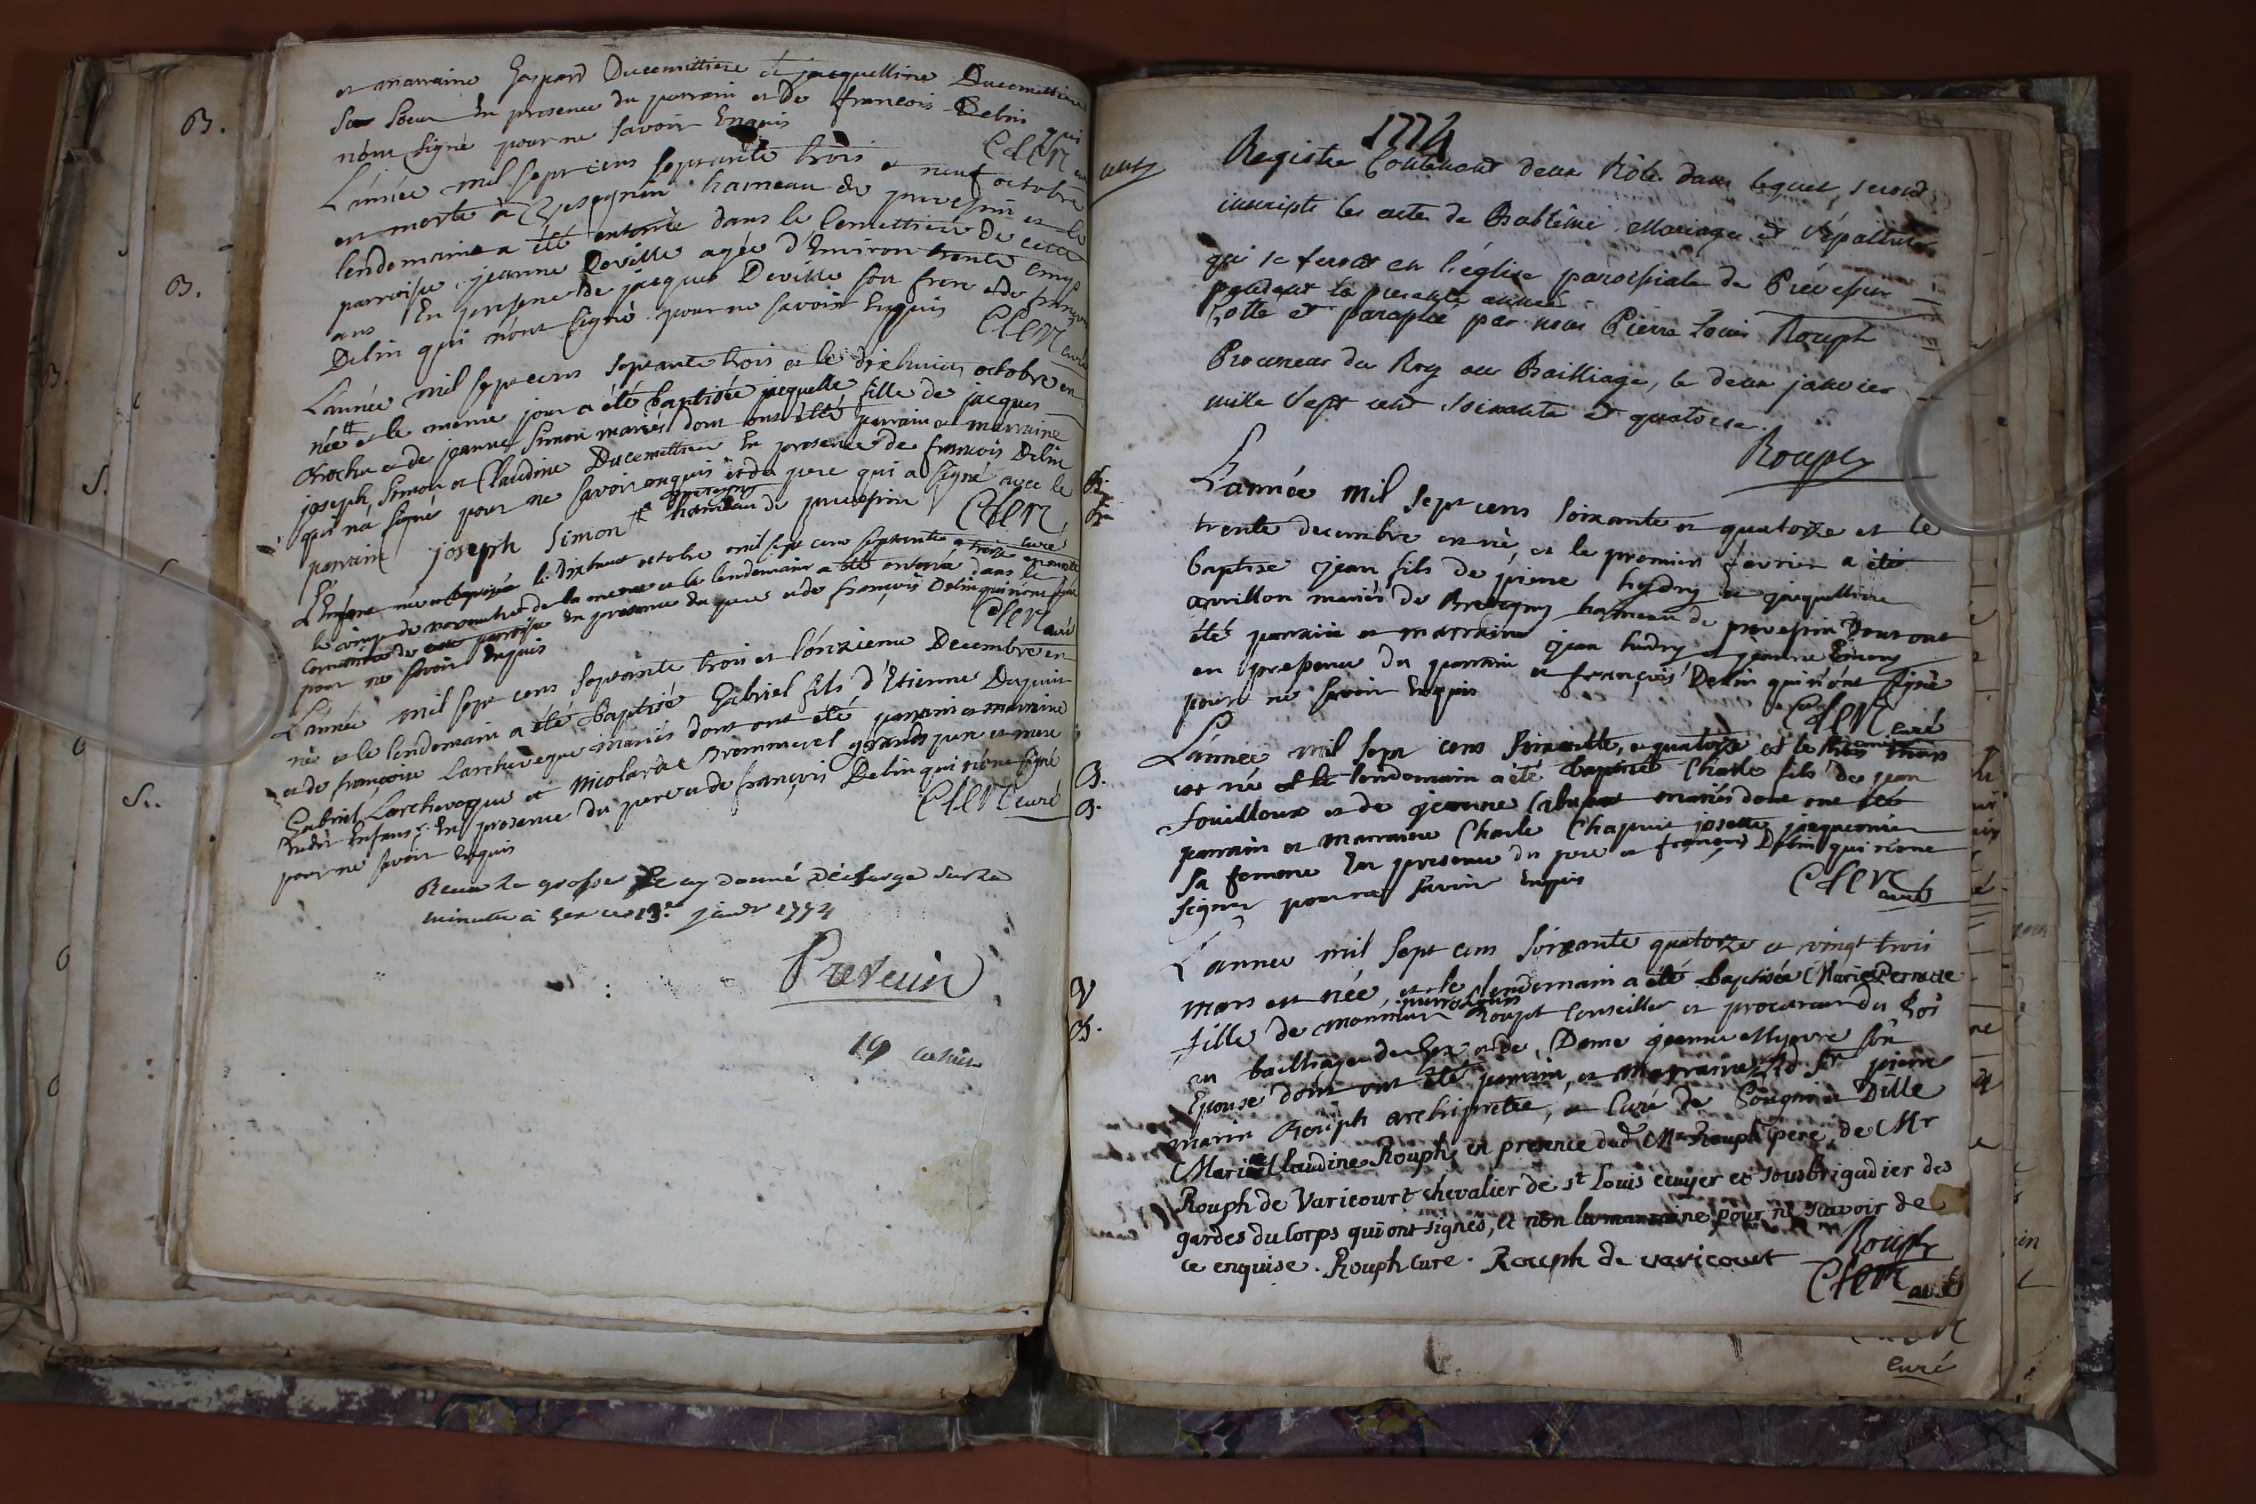 B.
B.
S.
S.
et marraine Gaspard Ducemettiere et jacquelline Ducemettiere
sa soeur En presence du parrain et de francois Delin qui
n'ont signé pour ne savoir Enquis
Clerc curé
L'année mil sept cens septante trois et neuf octobre
est morte à hameau de prevessin et le
lendemain a été enterrée dans le Cemettiere de cette
parroisse jeanne Deville agée d'Environ trente cinq
ans En presence de jacques Deville son frere et de françois
Delin qui n'ont signé pour ne savoir Enquis
Clerc curé
L'année mil sept cens septante trois et le dixhuit octobre est
née et le meme jour a été baptisée jacquelle fille de jacques
Roche et de jeanne Simon mariés dont ont été parrain et marraine
joseph Simon et Claudine Ducemettiere En presence de francois Delin
qui n'a signé pour ne savoir enquis et du pere qui a signé avec le
parrain joseph Simon hameau de prevessin Clerc
curé
L'Enfant née et baptisée le dixhuit octobre mil sept cens septante et trois est morte
le vingt de novembre de la meme et le lendemain a été enterrée dans le
Cemettiere de cette parroisse En presence du pere et de françois Delin qui n'ont signé
pour ne savoir Enquis Clerc curé
L'année mil sept cens septante trois et l'onzieme Decembre est
né et le lendemain a été baptisé Gabriel fils d'Etienne Dupuis
et de francoise Larcheveque mariés dont ont été parrain et marraine
Gabriel Larcheveque et Nicolarde Brommerel grands pere et mere
dudit Enfant En presence du pere et de françois Delin qui n'ont signé
pour ne savoir Enquis Clerc curé
Receu la grosse Et ay donné Décharge sur la
minutte à Gex ce 13e janvr 1774
Prevein
19
1774
Registre Contenant deux Rôle dans lequel seront
inscripts les actes de Babtême Mariage et Sépulture
qui se feront en l'église paroissiale de Prévessin
pendant la presente année
Cotté et paraphé par nous Pierre Louis Rouph
Procureur du Roy au Bailliage, le deux janvier
mille Sept cent Soixante et quatorze.
Rouph
L'année mil sept cens soixante et quatorze et le
trente decembre est né, et le premier fevrier a été
baptise jean fils de pierre hydry et jacquelline
avrillon mariés de Bretigny hameau de prevessin Dont ont
été parrain et marraine jean hudry et jeanne Emery
en presence du parrain et françois Delin qui n'ont signé
pour ne savoir Enquis
Clerc curé
B.
L'année mil sept cens soixante, et quatorze et le mars
est né et le lendemain a été baptisé Charle fils de jean
fouilloux et de jeanne mariés dont ont été
parrain et marraine Charle Chapuit josette jacquemier
sa femme En presence du pere et francois Delin qui n'ont
signer pour ne savoir Enquis Clerc
curé
L'annee mil sept cens soixante quatorze et vingt trois
mars est née, et le lendemain a été baptisée Marie Pernette
fille de monsieur pierre Louis Rouph Conseiller et procureur du Roi
au bailliage de Gex et de Dame jeanne Myevre son
Epouse dont ont été parrain, et marraine Rd Sr pierre
marin Rouph archiprêtre, et Curé de Pougni et Dlle
Marie Claudine Rouph, en presence dud Mr Rouph pere, de Mr
Rouph de Varicourt chevalier de st Louis ecuyer et sousbrigadier des
gardes du Corps qui ont signés, et non la marraine pour ne savoir de
ce enquise. Rouph curé. Rouph de varicourt Rouph
Clerc curé
curé